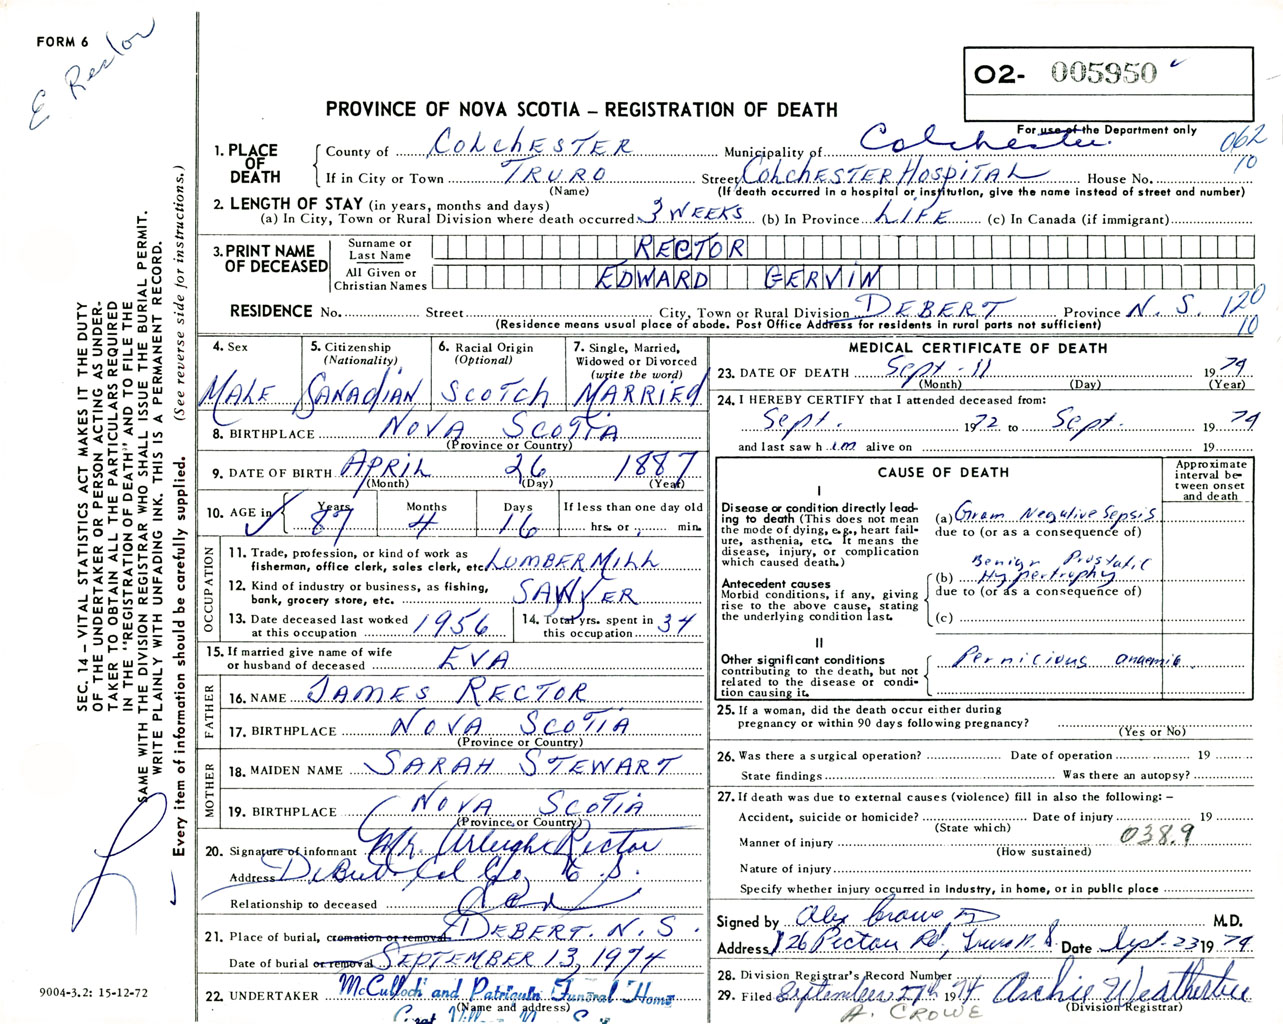 FORM 6
E Rector
O2- 005950
PROVINCE OF NOVA SCOTIA – REGISTRATION OF DEATH
For use of the Department only
1. PLACE OF DEATH
County of COLCHESTER Municipality of Colchester 062
If in City or Town TRURO Street COLCHESTER HOSPITAL House No. 10
(Name) (If death occurred in a hospital or institution, give the name instead of street and number)
2. LENGTH OF STAY (in years, months and days)
(a) In City, Town or Rural Division where death occurred 3 WEEKS (b) In Province LIFE (c) In Canada (if immigrant)
3. PRINT NAME OF DECEASED
Surname or Last Name RECTOR
All Given or Christian Names EDWARD GERVIN
RESIDENCE No. Street City, Town or Rural Division DEBERT Province N. S. 120
(Residence means usual place of abode. Post Office Address for residents in rural parts not sufficient) 10
4. Sex MALE
5. Citizenship (Nationality) CANADIAN
6. Racial Origin (Optional) SCOTCH
7. Single, Married, Widowed or Divorced (write the word) MARRIED
8. BIRTHPLACE NOVA SCOTIA
(Province or Country)
9. DATE OF BIRTH APRIL 26 1887
(Month) (Day) (Year)
10. AGE in Years Months Days If less than one day old
87 4 16 hrs. or min.
OCCUPATION
11. Trade, profession, or kind of work as fisherman, office clerk, sales clerk, etc. LUMBER MILL
12. Kind of industry or business, as fishing, bank, grocery store, etc. SAWYER
13. Date deceased last worked at this occupation 1956
14. Total yrs. spent in this occupation 34
15. If married give name of wife or husband of deceased EVA
FATHER
16. NAME JAMES RECTOR
17. BIRTHPLACE NOVA SCOTIA
(Province or Country)
MOTHER
18. MAIDEN NAME SARAH STEWART
19. BIRTHPLACE NOVA SCOTIA
(Province or Country)
20. Signature of informant Mr. Arleigh Rector
Address Debert Col Co, N. S.
Relationship to deceased Son
21. Place of burial, cremation or removal DEBERT. N. S.
Date of burial or removal SEPTEMBER 13, 1974
22. UNDERTAKER McCulloch and Patriquin Funeral Home
(Name and address)
MEDICAL CERTIFICATE OF DEATH
23. DATE OF DEATH Sept. 11 19 74
(Month) (Day) (Year)
24. I HEREBY CERTIFY that I attended deceased from:
Sept. 19 72 to Sept. 19 74
and last saw h im alive on 19
CAUSE OF DEATH
Approximate interval between onset and death
I
Disease or condition directly leading to death (This does not mean the mode of dying, e.g., heart failure, asthenia, etc. It means the disease, injury, or complication which caused death.)
(a) Gram Negative Sepsis
due to (or as a consequence of)
Antecedent causes
Morbid conditions, if any, giving rise to the above cause, stating the underlying condition last.
(b) Benign Prostatic Hypertrophy
due to (or as a consequence of)
(c)
II
Other significant conditions contributing to the death, but not related to the disease or condition causing it.
Pernicious anaemia
25. If a woman, did the death occur either during pregnancy or within 90 days following pregnancy?
(Yes or No)
26. Was there a surgical operation? Date of operation 19
State findings Was there an autopsy?
27. If death was due to external causes (violence) fill in also the following: –
Accident, suicide or homicide? Date of injury 19
(State which)
Manner of injury 038.9
(How sustained)
Nature of injury
Specify whether injury occurred in industry, in home, or in public place
Signed by Alex Crowe M.D.
Address 126 Pictou Rd, Truro N. S. Date Sept. 23 19 74
28. Division Registrar's Record Number
29. Filed September 27th 1974 Archie Weatherbee
(Division Registrar)
A. CROWE
SEC. 14 – VITAL STATISTICS ACT MAKES IT THE DUTY
OF THE UNDERTAKER OR PERSON ACTING AS UNDER-
TAKER TO OBTAIN ALL THE PARTICULARS REQUIRED
IN THE "REGISTRATION OF DEATH" AND TO FILE THE
SAME WITH THE DIVISION REGISTRAR WHO SHALL ISSUE THE BURIAL PERMIT.
WRITE PLAINLY WITH UNFADING INK. THIS IS A PERMANENT RECORD.
Every item of information should be carefully supplied. (See reverse side for instructions.)
9004-3.2: 15-12-72